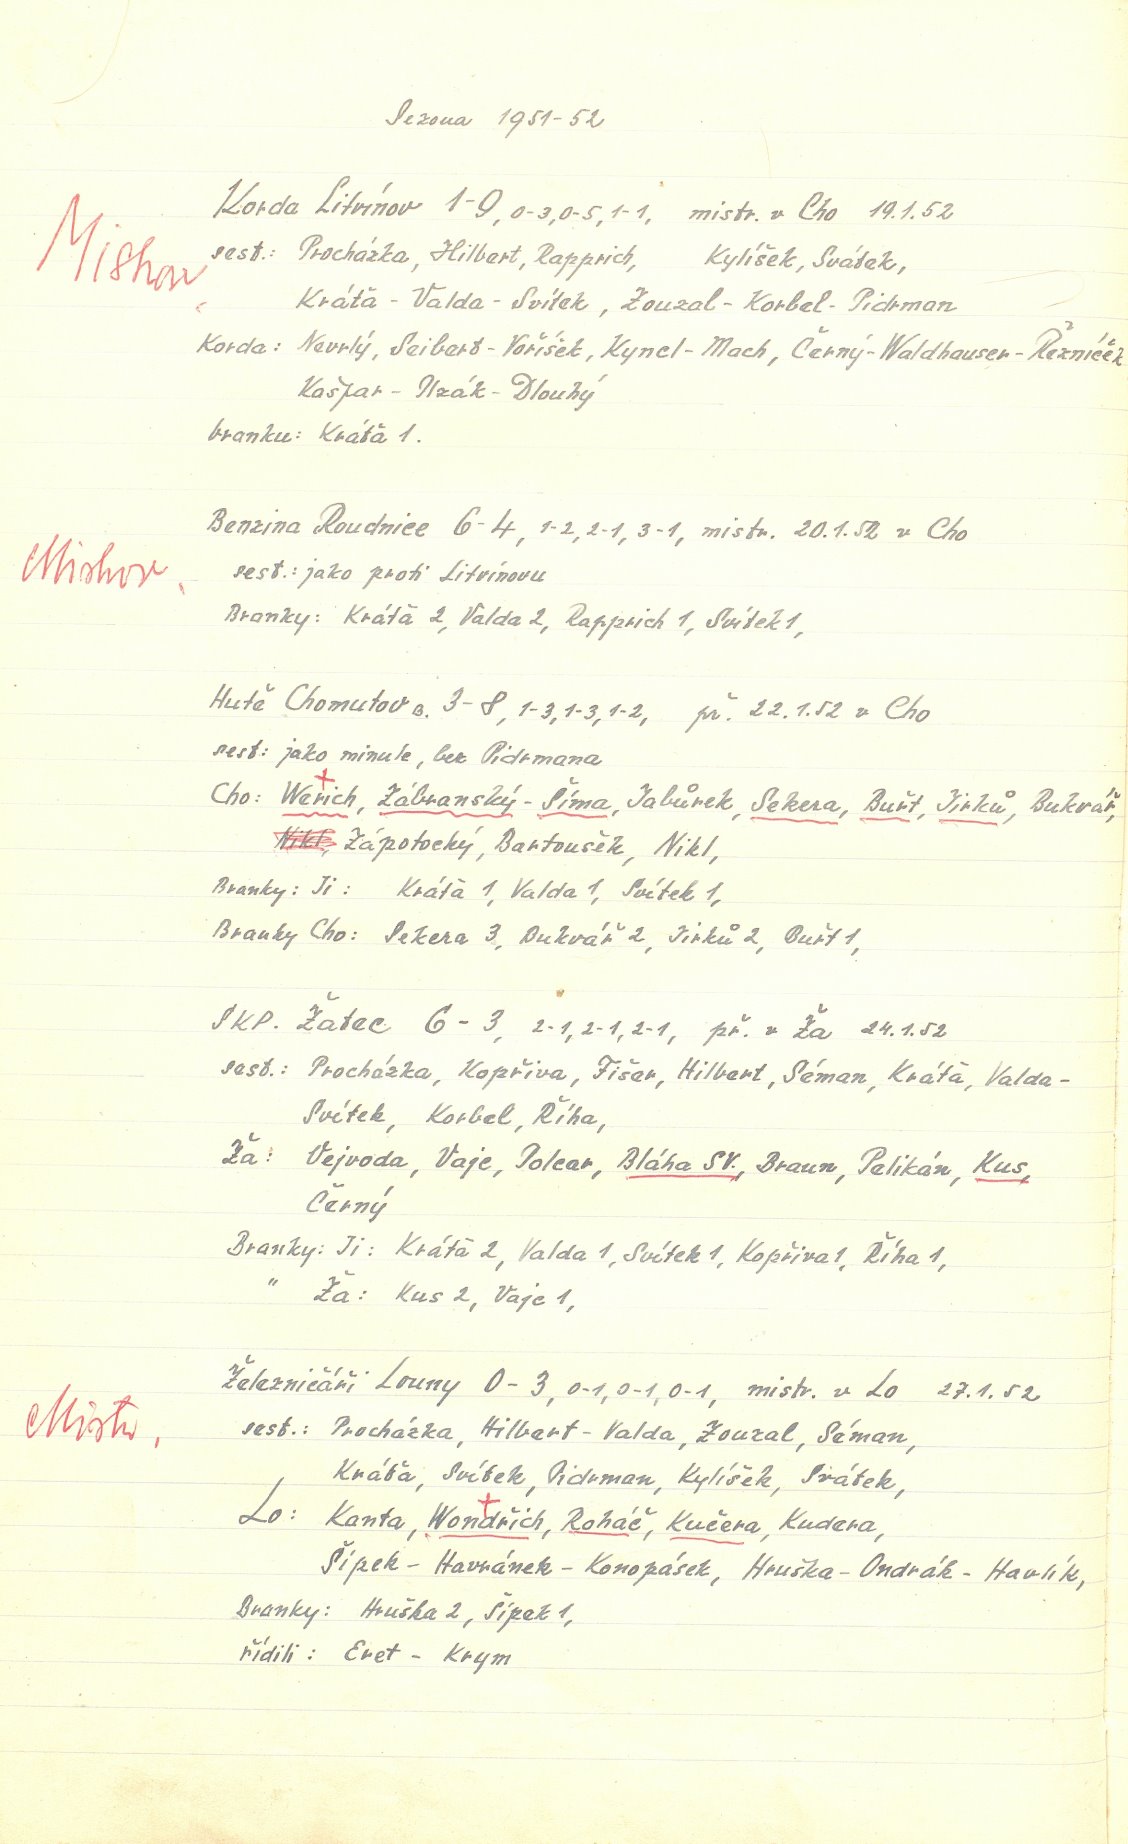 Sezona 1951-52
Korda Litvínov 1-9, 0-3, 0-5, 1-1, mistr. v Cho 19.1.52
sest.: Procházka, Hilbert, Rapprich, Kylíšek, Svátek,
Krátá - Valda - Svítek, Zouzal - Korbel - Pidrman
Korda: Nevrlý, Seibert - Voříšek, Kynel - Mach, Černý - Waldhauser - Řezníček
Kašpar - Uzák - Dlouhý
branku: Krátá 1.
Benzina Roudnice 6-4, 1-2, 2-1, 3-1, mistr. 20.1.52 v Cho
sest.: jako proti Litvínovu
Branky: Krátá 2, Valda 2, Rapprich 1, Svítek 1,
Hutě Chomutov B. 3-8, 1-3, 1-3, 1-2, př. 22.1.52 v Cho
sest: jako minule, bez Pidrmana
Cho: Werich, Zábranský - Šíma, Jabůrek, Sekera, Buřt, Jirků, Bukvář,
Nikl, Zápotocký, Bartoušek, Nikl,
Branky: Ji: Krátá 1, Valda 1, Svítek 1,
Branky Cho: Sekera 3, Bukvář 2, Jirků 2, Buřt 1,
SKP. Žatec 6-3, 2-1, 2-1, 2-1, př. v Ža 24.1.52
sest.: Procházka, Kopřiva, Fišer, Hilbert, Séman, Krátá, Valda -
Svítek, Korbel, Říha,
Ža: Vejvoda, Vaje, Polcar, Bláha SV., Braun, Pelikán, Kus,
Černý
Branky: Ji: Krátá 2, Valda 1, Svítek 1, Kopřiva 1, Říha 1,
" Ža: Kus 2, Vaje 1,
Železničáři Louny 0-3, 0-1, 0-1, 0-1, mistr. v Lo 27.1.52
Mistr.
sest.: Procházka, Hilbert - Valda, Zouzal, Séman,
Krátá, Svítek, Pidrman, Kylíšek, Svátek,
Lo: Kanta, Wondřich, Roháč, Kučera, Kudera,
Šípek - Havránek - Konopásek, Hruška - Ondrák - Havlík,
Branky: Hruška 2, Šípek 1,
řídili: Eret - Krym